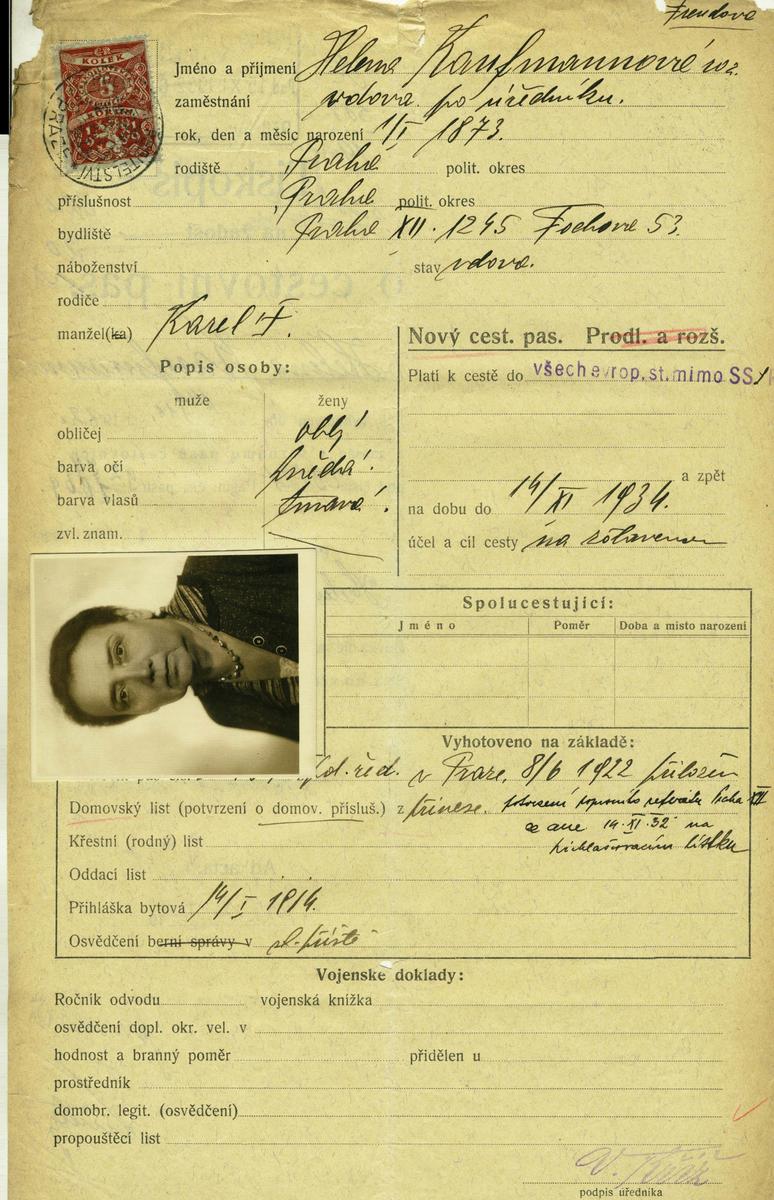 Freudova
KOLEK
5
Jméno a příjmení Helena Kaufmannová roz.
zaměstnání vdova po úředníku.
rok, den a měsíc narození 1/I 1873.
rodiště Praha polit. okres
příslušnost Praha polit. okres
bydliště Praha XII. 1245 Fochova 53.
náboženství stav vdova.
rodiče
manžel(ka) Karel
Nový cest. pas. Prodl. a rozš.
Popis osoby:
Platí k cestě do všech evrop. st. mimo SS
muže ženy
obličej oblý
barva očí hnědá
barva vlasů tmavá
zvl. znam.
a zpět
na dobu do 14/XI 1934.
účel a cíl cesty na zotavenou
Spolucestující:
Jméno Poměr Doba a místo narození
Vyhotoveno na základě:
pol. řed. v Praze, 8/6 1922 přiložen
Domovský list (potvrzení o domov. přísluš.) z přinese. potvrzení Praha XII
ze dne 14.XI.32 na
lístku
Křestní (rodný) list
Oddací list
Přihláška bytová 14/I 1914.
Osvědčení berní správy v
Vojenské doklady:
Ročník odvodu vojenská knížka
osvědčení dopl. okr. vel. v
hodnost a branný poměr přidělen u
prostředník
domobr. legit. (osvědčení)
propouštěcí list
podpis úředníka